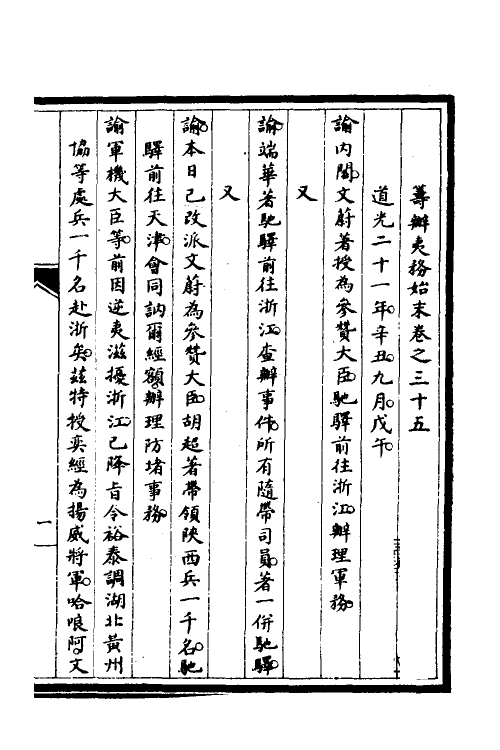 籌辦夷務始末卷之三十五
道光二十一年。辛丑。九月。戊午。
諭內閣。文蔚著授為參贊大臣。馳驛前往浙江。辦理軍務。
又
諭。端華著馳驛前往浙江。查辦事件。所有隨帶司員。著一併馳驛。
又
諭。本日已改派文蔚為參贊大臣。胡超著帶領陝西兵一千名。馳
驛前往天津。會同訥爾經額。辦理防堵事務。
諭軍機大臣等。前因逆夷滋擾浙江。已降旨令裕泰調湖北黃州
協等處兵一千名赴浙矣。茲特授奕經為揚威將軍。哈哴阿。文
一